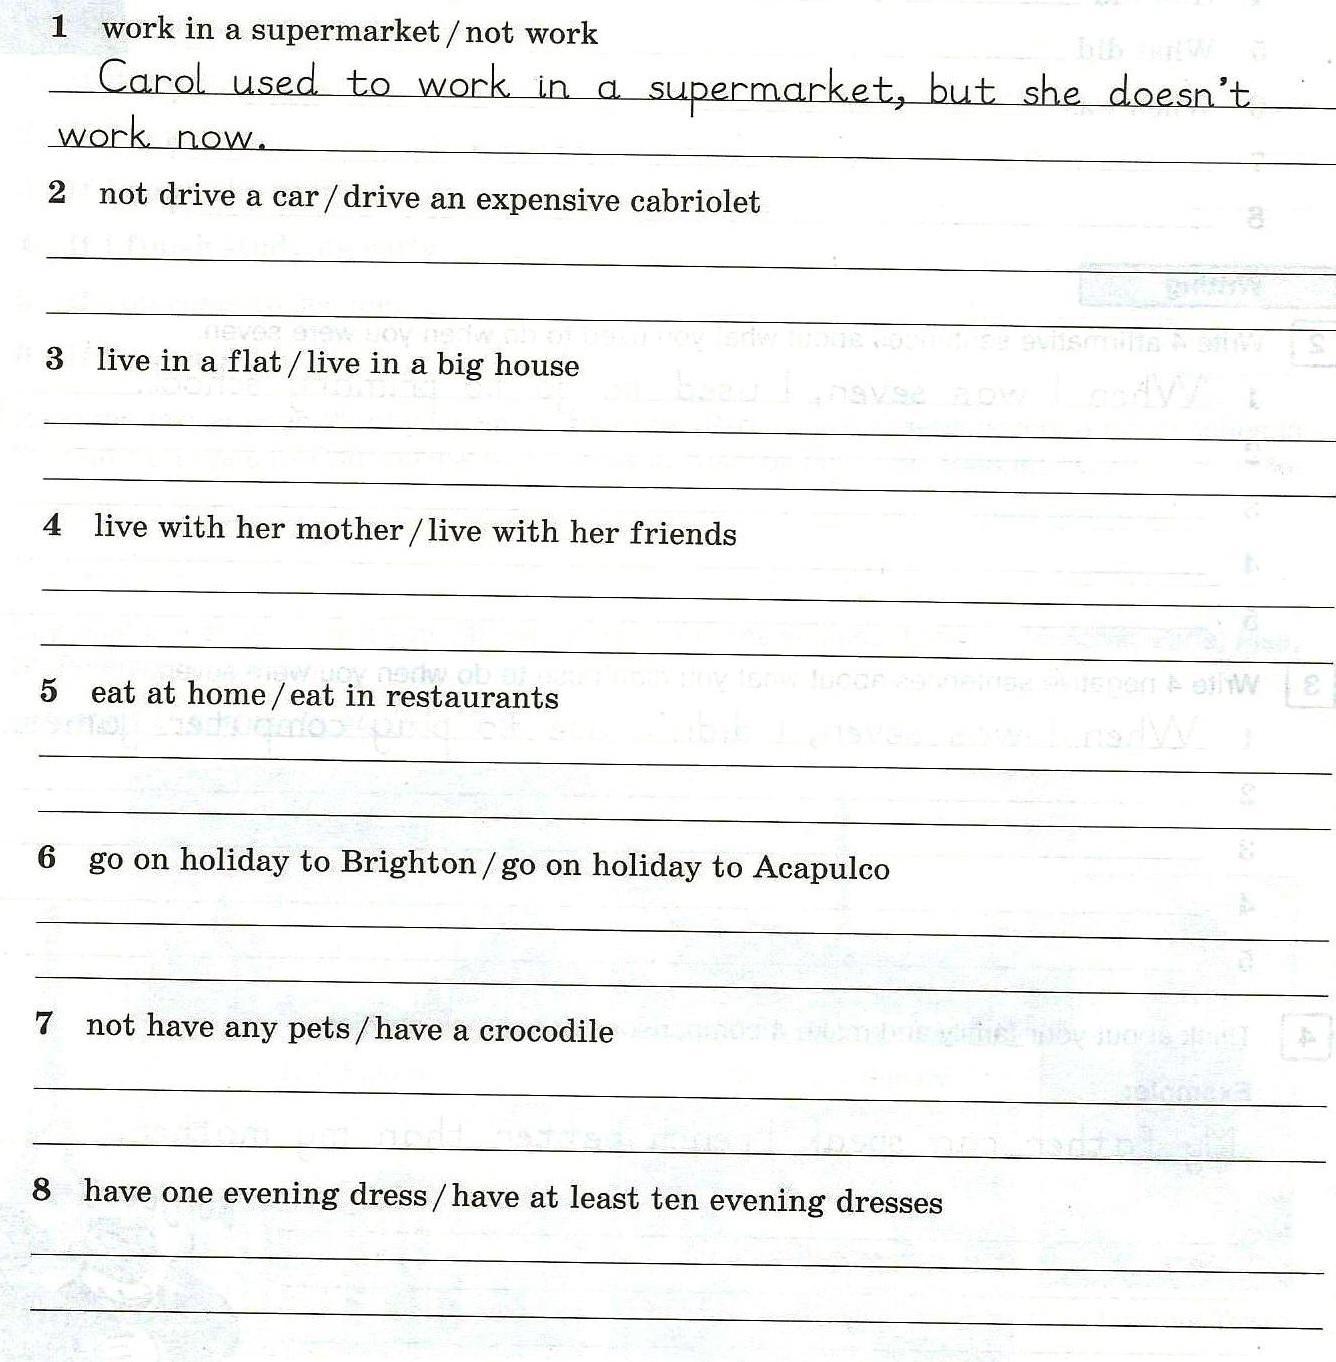 1 work in a supermarket / not work
Carol used to work in a supermarket, but she doesn't
work now.
2 not drive a car / drive an expensive cabriolet
3 live in a flat / live in a big house
4 live with her mother / live with her friends
5 eat at home / eat in restaurants
6 go on holiday to Brighton / go on holiday to Acapulco
7 not have any pets / have a crocodile
8 have one evening dress / have at least ten evening dresses